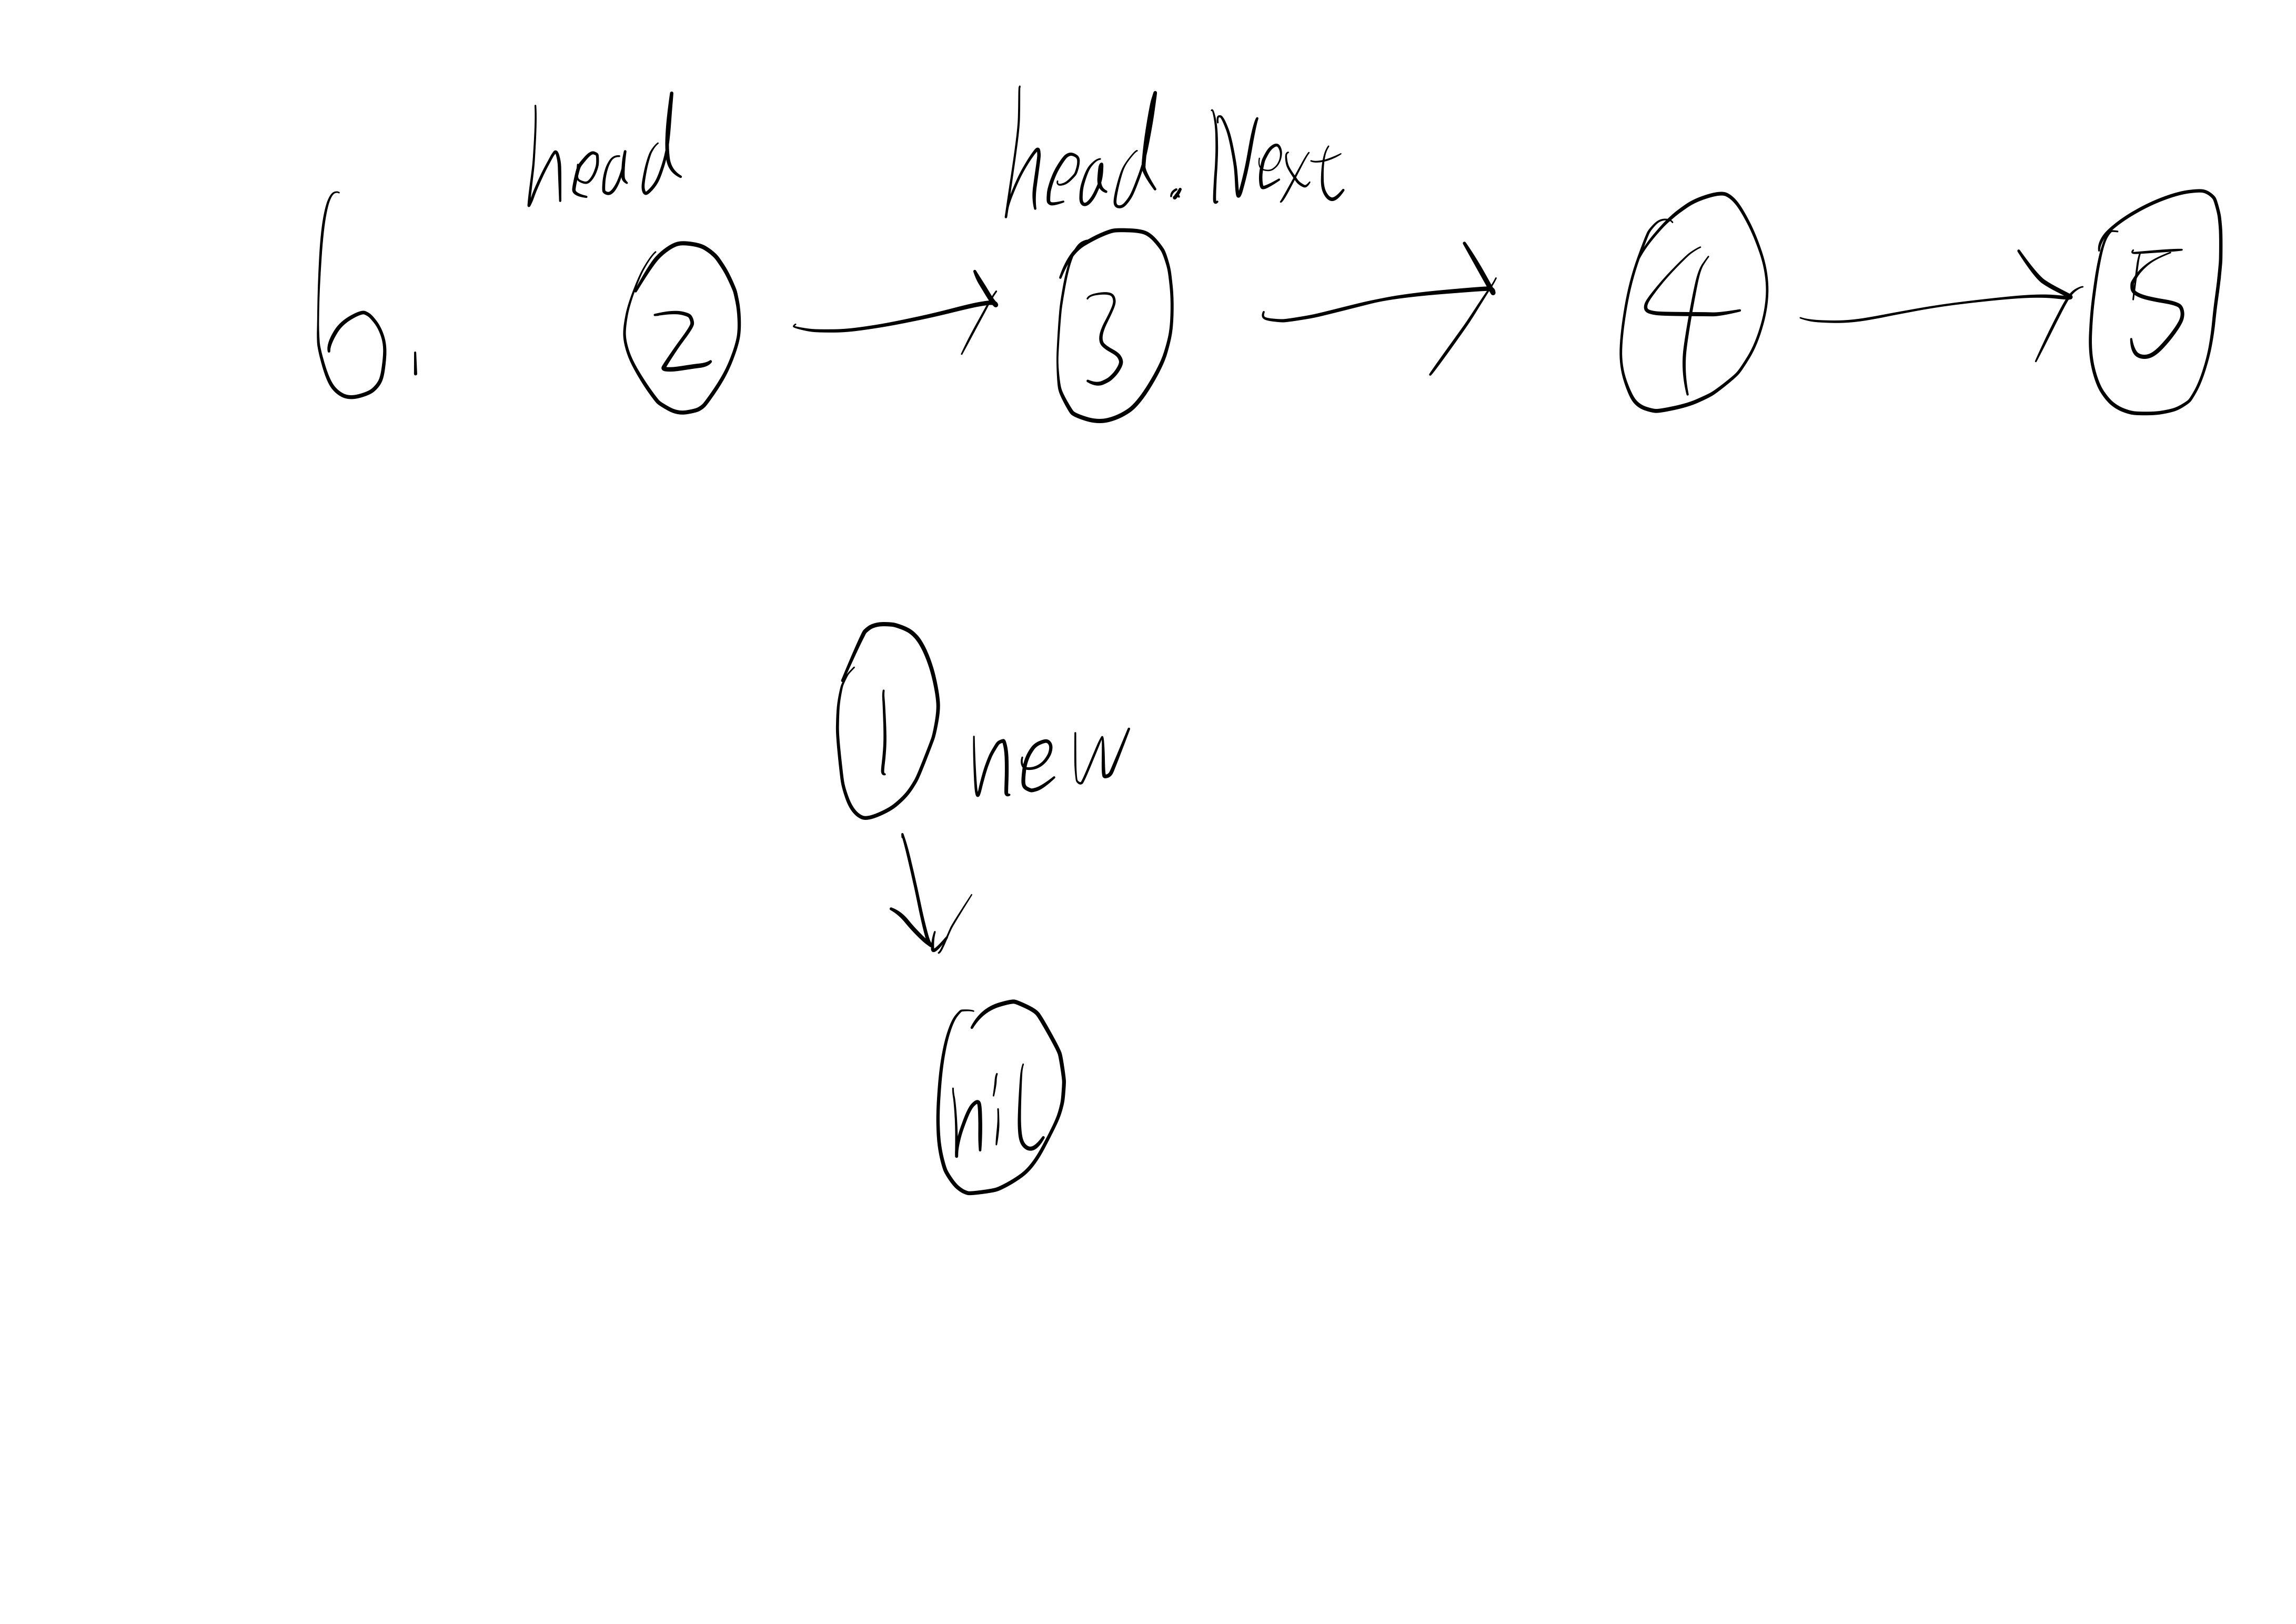 head head.Next
6. 2 3 4 5
1 new
nil